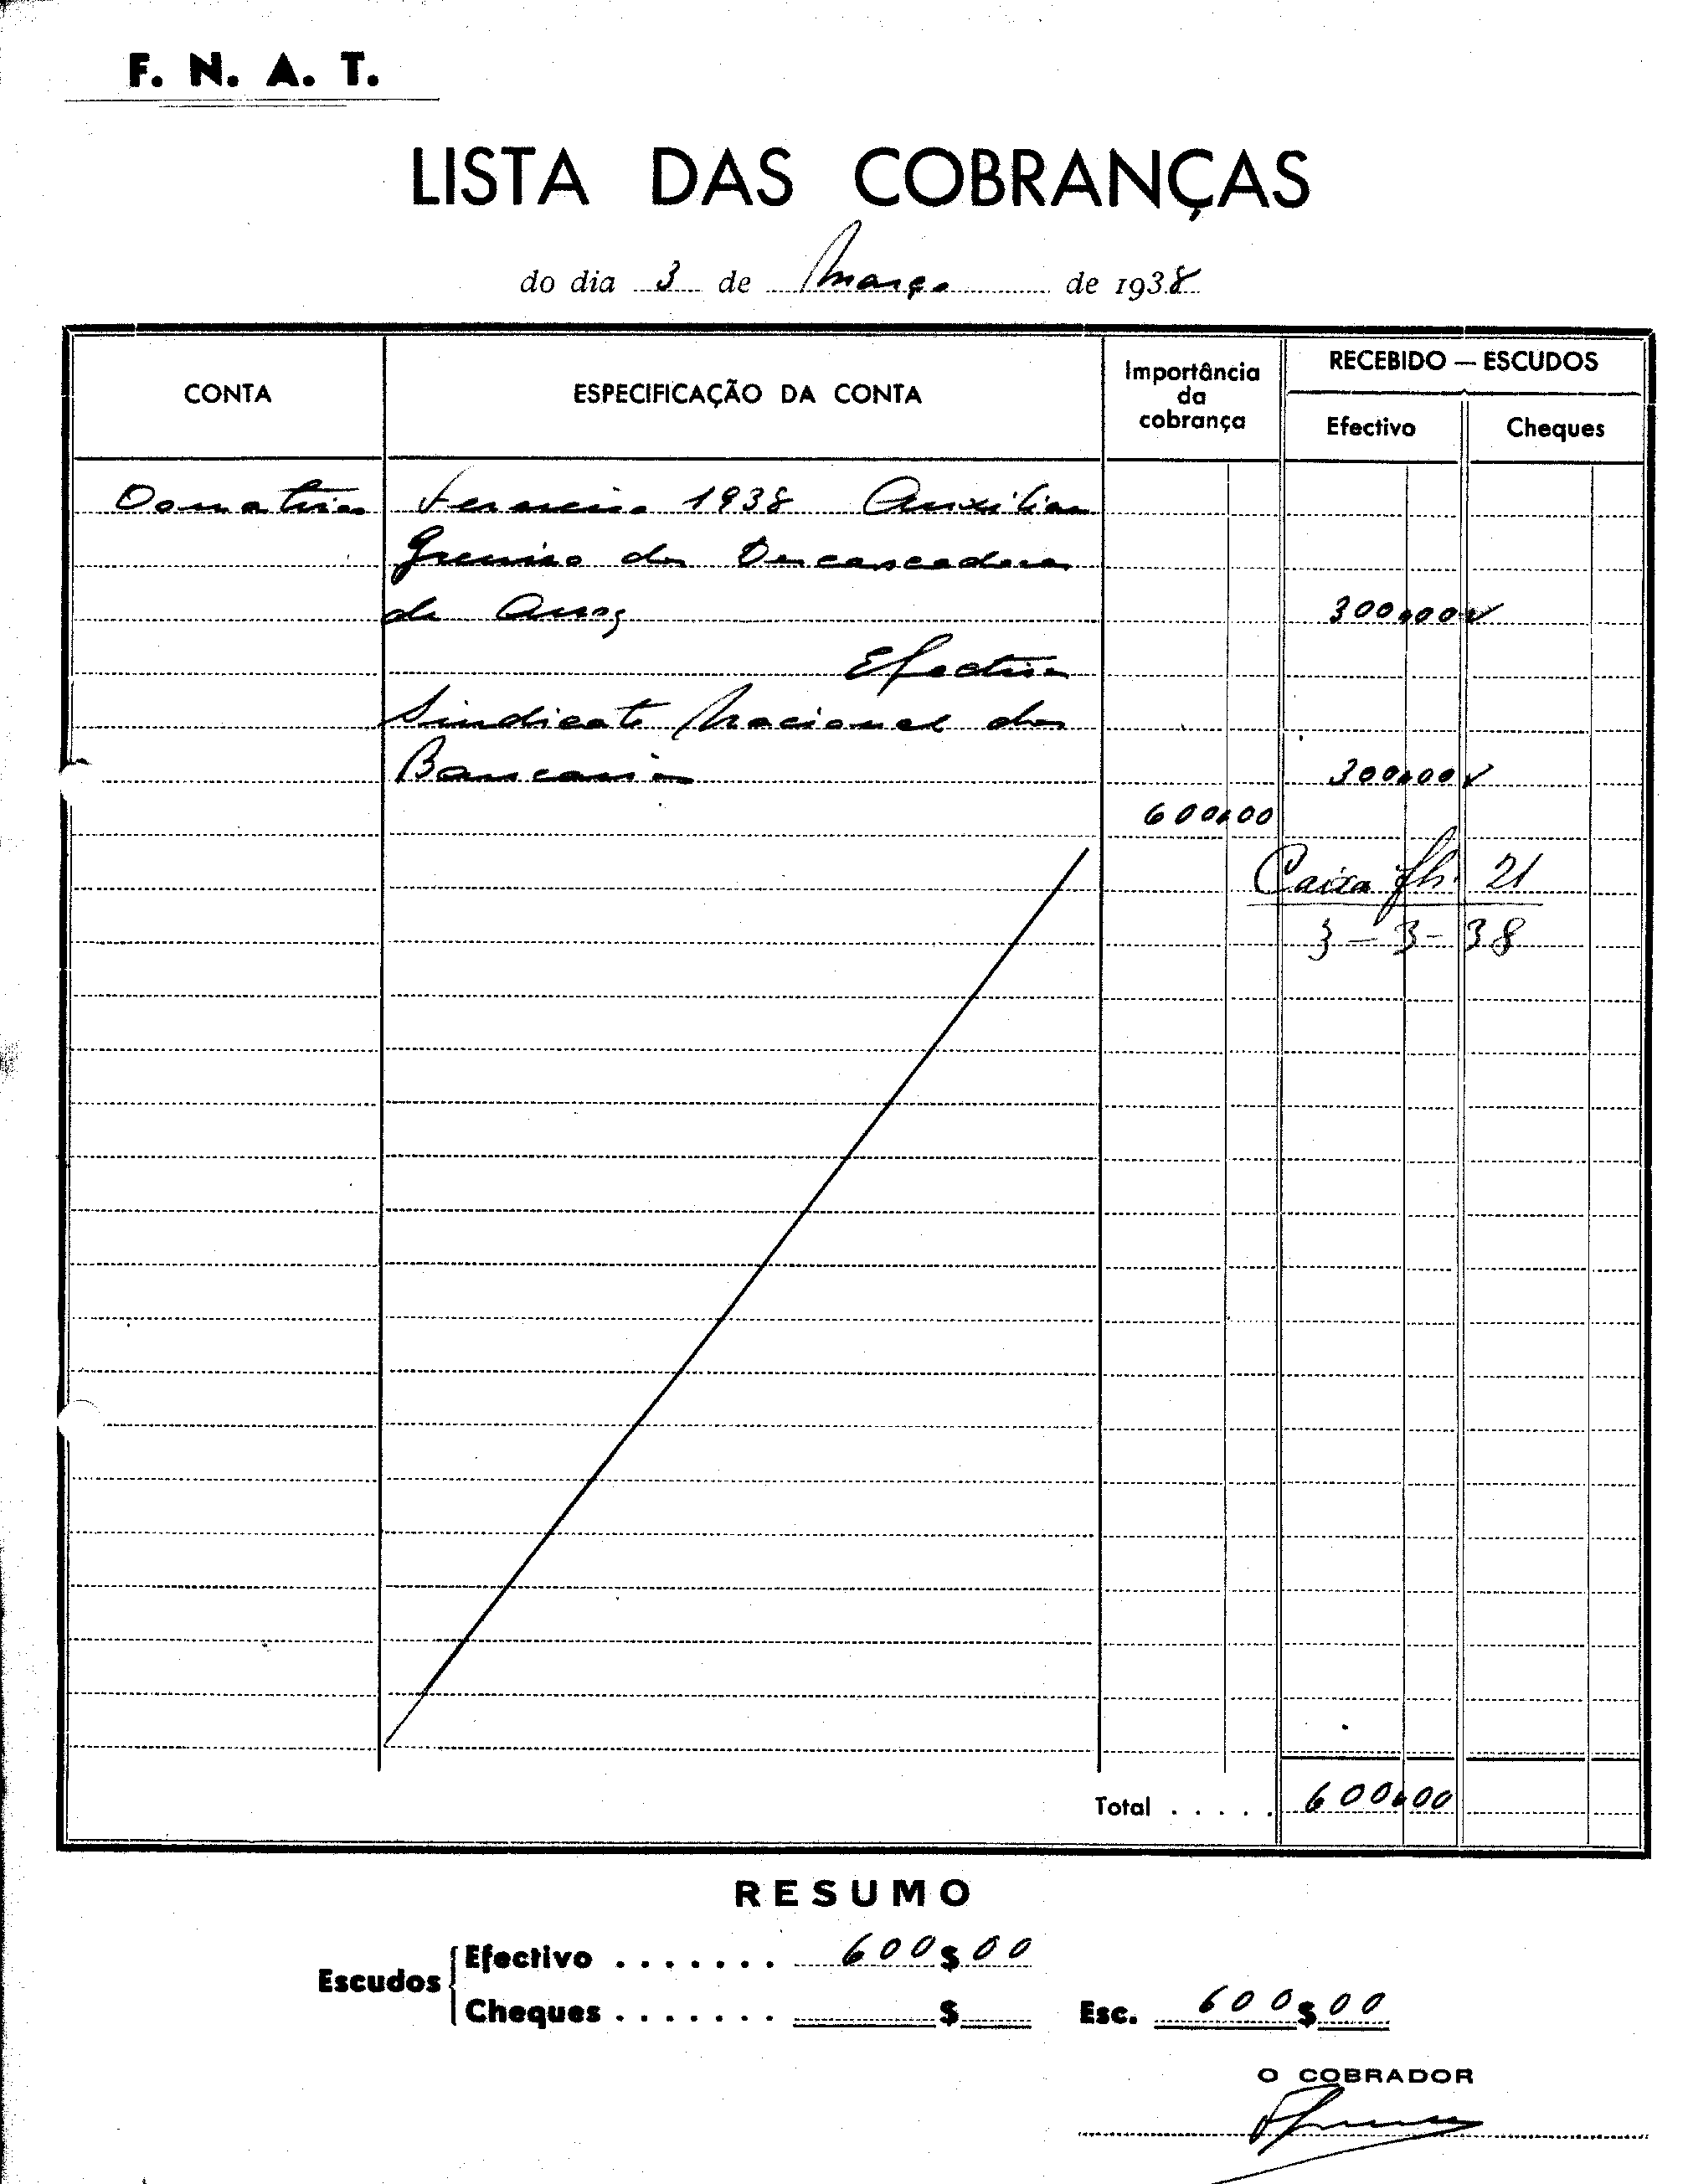 F. N. A. T.
LISTA DAS COBRANÇAS
do dia 3 de Março de 1938
CONTA
ESPECIFICAÇÃO DA CONTA
Importância
da
cobrança
RECEBIDO — ESCUDOS
Efectivo
Cheques
Donativos Fevereiro 1938 Auxiliar
Gremio dos Descascadores
de Arroz 300,00
Efectivo
Sindicato Nacional dos
Bancarios 300,00
600,00
Caixa fh. 21
3 - 3 - 38
Total . . . . . 600,00
RESUMO
Escudos
Efectivo . . . . . . . 600$00
Cheques . . . . . . . $
Esc. 600$00
O COBRADOR